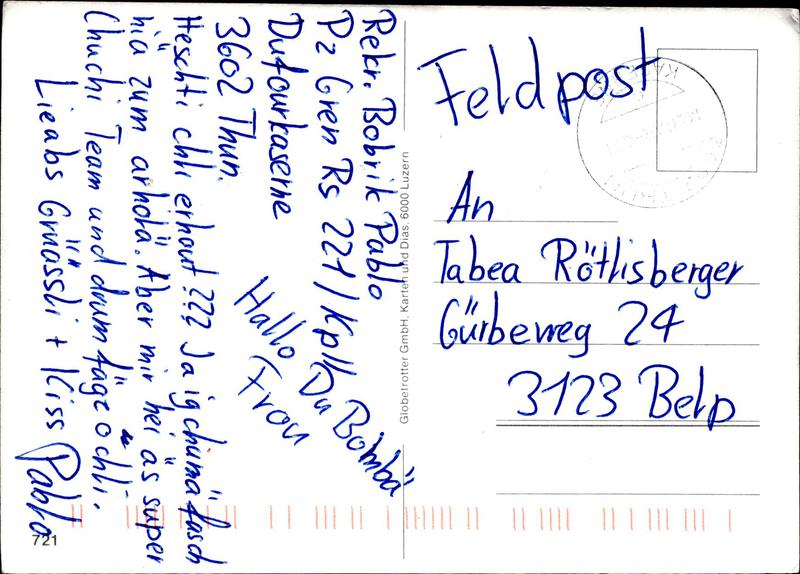 Rekr. Bobrik Pablo
Pz Gren Rs 221/Kp II
Dufourkaserne
3602 Thun.
Hallo Frou
Du Bömbä
Heschti chli erhout??? Ja ig chumä fasch
nia zum arholä. Aber mir hei äs super
Chuchi Team und drum fägz o chli.
Lieabs Grüässli + Kiss
Pablo
721
Globetrotter GmbH, Karten und Dias, 6000 Luzern
Feldpost
An
Tabea Röthlisberger
Gürbeweg 24
3123 Belp